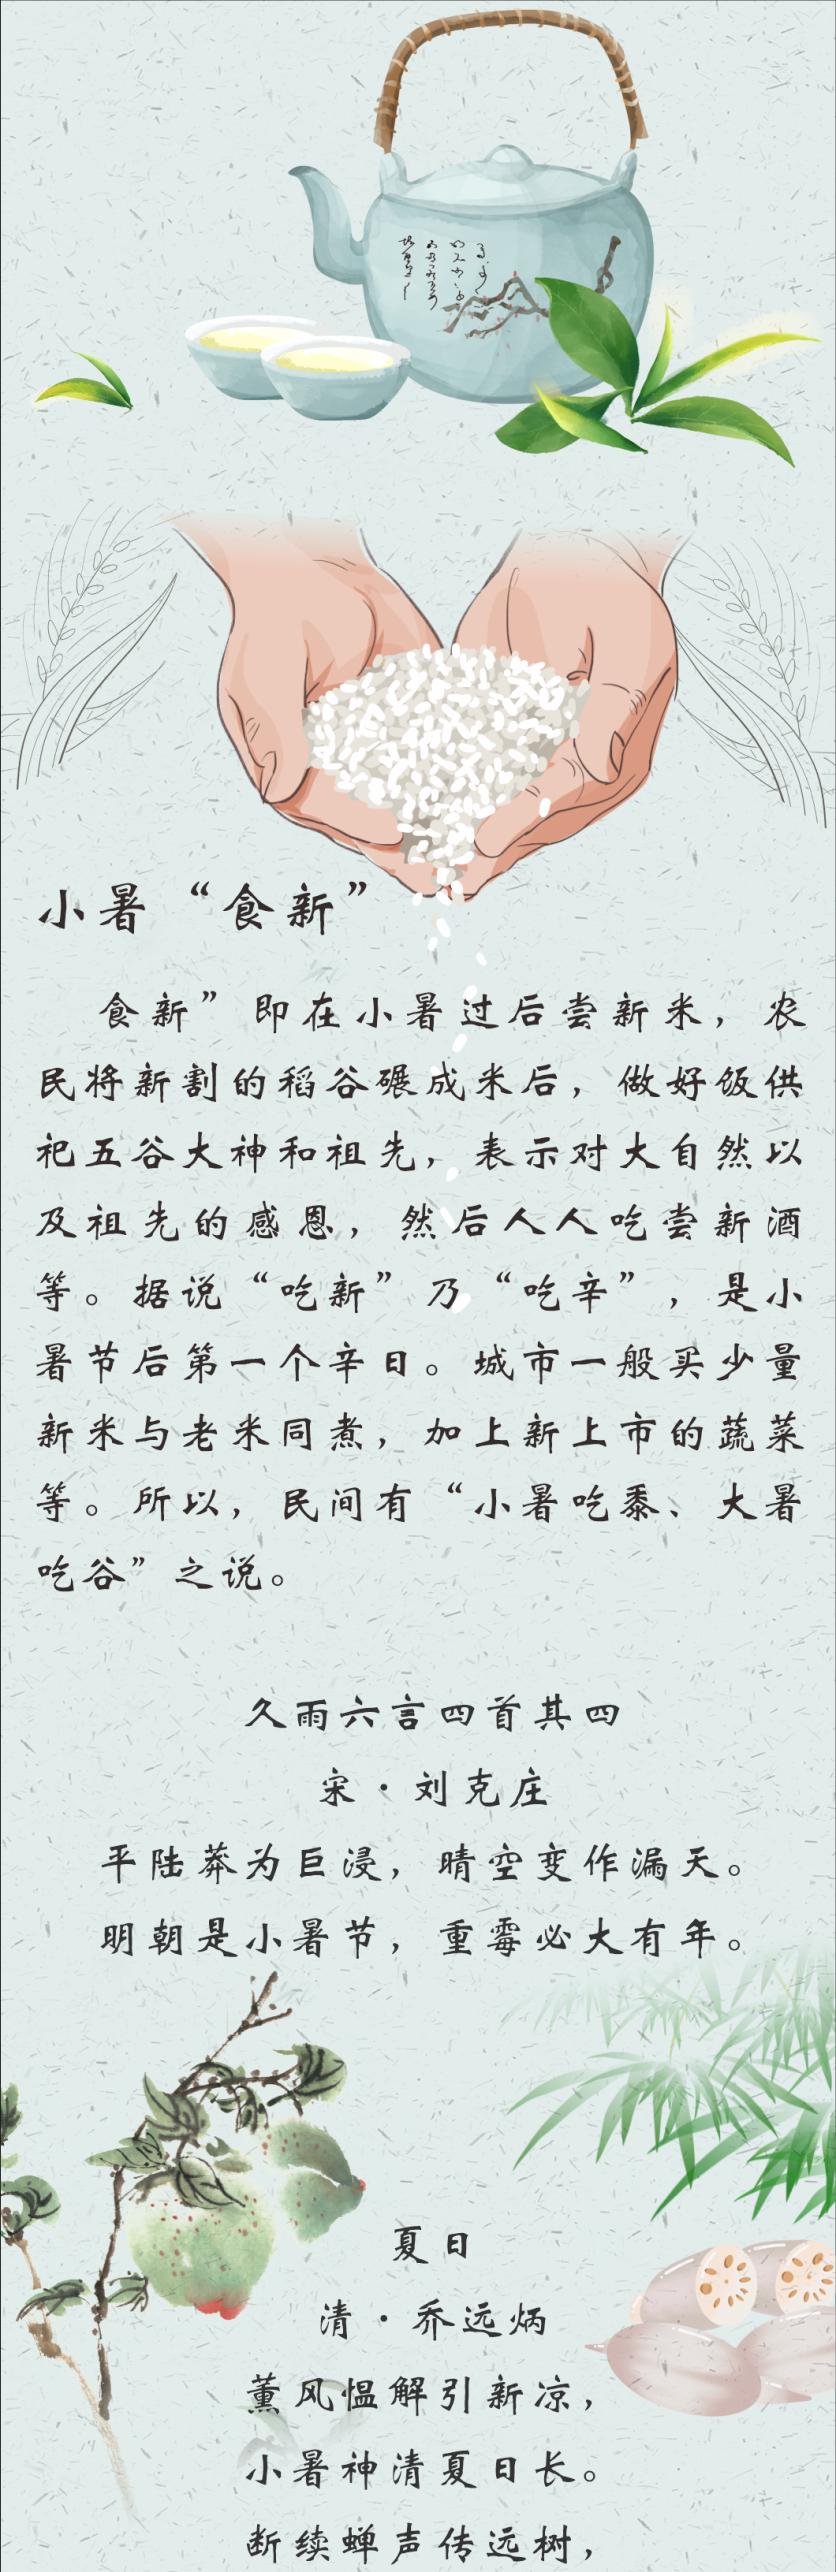 小暑“食新”
食新”即在小暑过后尝新米，农
民将新割的稻谷碾成米后，做好饭供
祀五谷大神和祖先，表示对大自然以
及祖先的感恩，然后人人吃尝新酒
等。据说“吃新”乃“吃辛”，是小
暑节后第一个辛日。城市一般买少量
新米与老米同煮，加上新上市的蔬菜
等。所以，民间有“小暑吃黍、大暑
吃谷”之说。
久雨六言四首其四
宋·刘克庄
平陆莽为巨浸，晴空变作漏天。
明朝是小暑节，重霉必大有年。
夏日
清·乔远炳
薰风愠解引新凉，
小暑神清夏日长。
断续蝉声传远树，